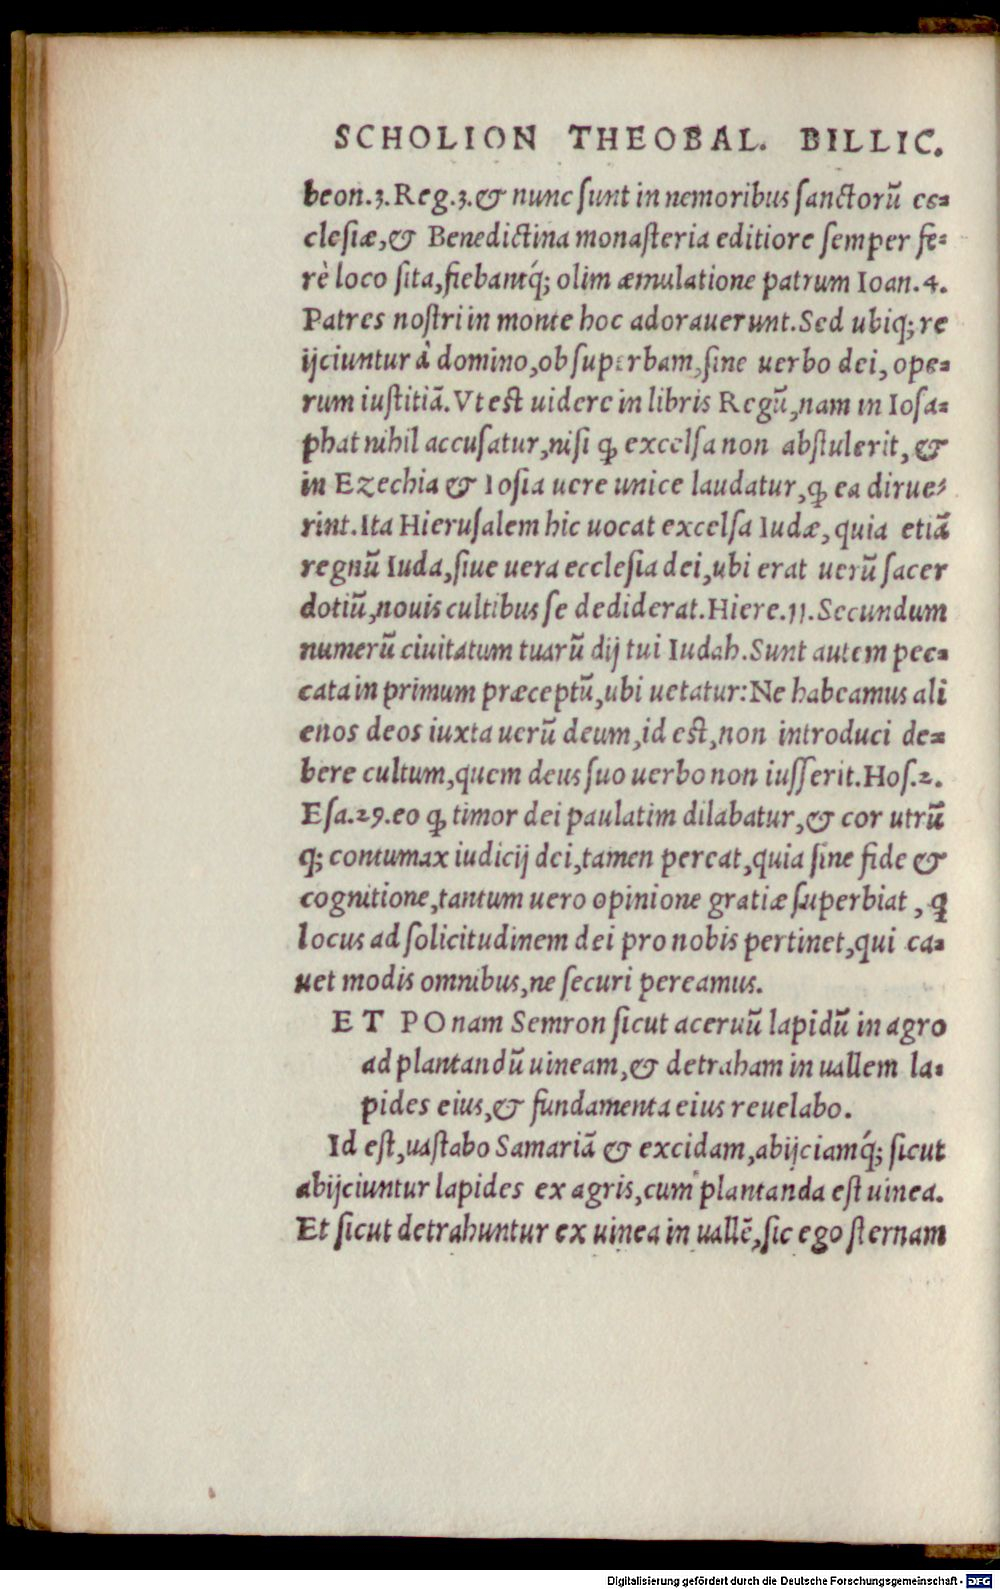 SCHOLION THEOBAL. BILLIC.
beon.3.Reg.3.& nunc ſunt in nemoribus ſanctorũ ec=
cleſiæ,& Benedictina monaſteria editiore ſemper fe=
rè loco ſita,fiebantq́; olim æmulatione patrum Ioan.4.
Patres noſtri in monte hoc adorauerunt.Sed ubiq; re
ijciuntur à domino,ob ſuperbam,ſine uerbo dei, ope=
rum iuſtitiã.Vt eſt uidere in libris Regũ,nam in Ioſa=
phat nihil accuſatur,niſi ꝙ excelſa non abſtulerit, &
in Ezechia & Ioſia uere unice laudatur,ꝙ ea dirue=
rint.Ita Hieruſalem hic uocat excelſa Iudæ, quia etiã
regnũ Iuda,ſiue uera eccleſia dei,ubi erat uerũ ſacer
dotiũ,nouis cultibus ſe dediderat.Hiere.11.Secundum
numerũ ciuitatum tuarũ dij tui Iudah.Sunt autem pec=
cata in primum præceptũ,ubi uetatur:Ne habeamus ali
enos deos iuxta uerũ deum,id eſt,non introduci de=
bere cultum,quem deus ſuo uerbo non iuſſerit.Hoſ.2.
Eſa.29.eo ꝙ timor dei paulatim dilabatur,& cor utrũ
q; contumax iudicij dei,tamen pereat,quia ſine fide &
cognitione,tantum uero opinione gratiæ ſuperbiat , ꝗ
locus ad ſolicitudinem dei pro nobis pertinet,qui ca=
uet modis omnibus,ne ſecuri pereamus.
ET POnam Semron ſicut aceruũ lapidũ in agro
ad plantandũ uineam,& detraham in uallem la=
pides eius,& fundamenta eius reuelabo.
Id eſt,uaſtabo Samariã & excidam,abijciamq́; ſicut
abijciuntur lapides ex agris,cum plantanda eſt uinea.
Et ſicut detrahuntur ex uinea in uallẽ,ſic ego ſternam
Digitalisierung gefördert durch die Deutsche Forschungsgemeinschaft - DFG